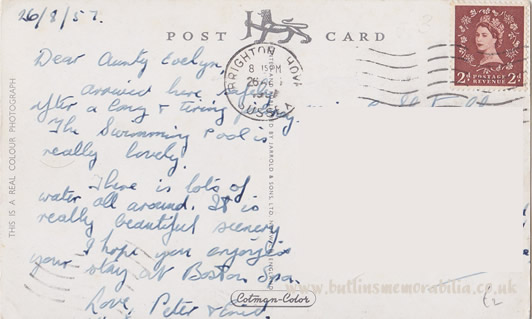 26/8/57.
POST CARD
Dear Aunty Evelyn,
arrived here safely
after a long & tiring journey.
The Swimming pool is
really lovely.
There is lots of
water all around. It is
really beautiful scenery
I hope you enjoyed
your stay at Boston Spa.
Love, Peter &
THIS IS A REAL COLOUR PHOTOGRAPH
BRIGHTON HOVE
8 15 PM
SUSSEX
2d POSTAGE REVENUE 2d
BY JARROLD & SONS LTD.
Cotman-Color
www.butlinsmemorabilia.co.uk
£2